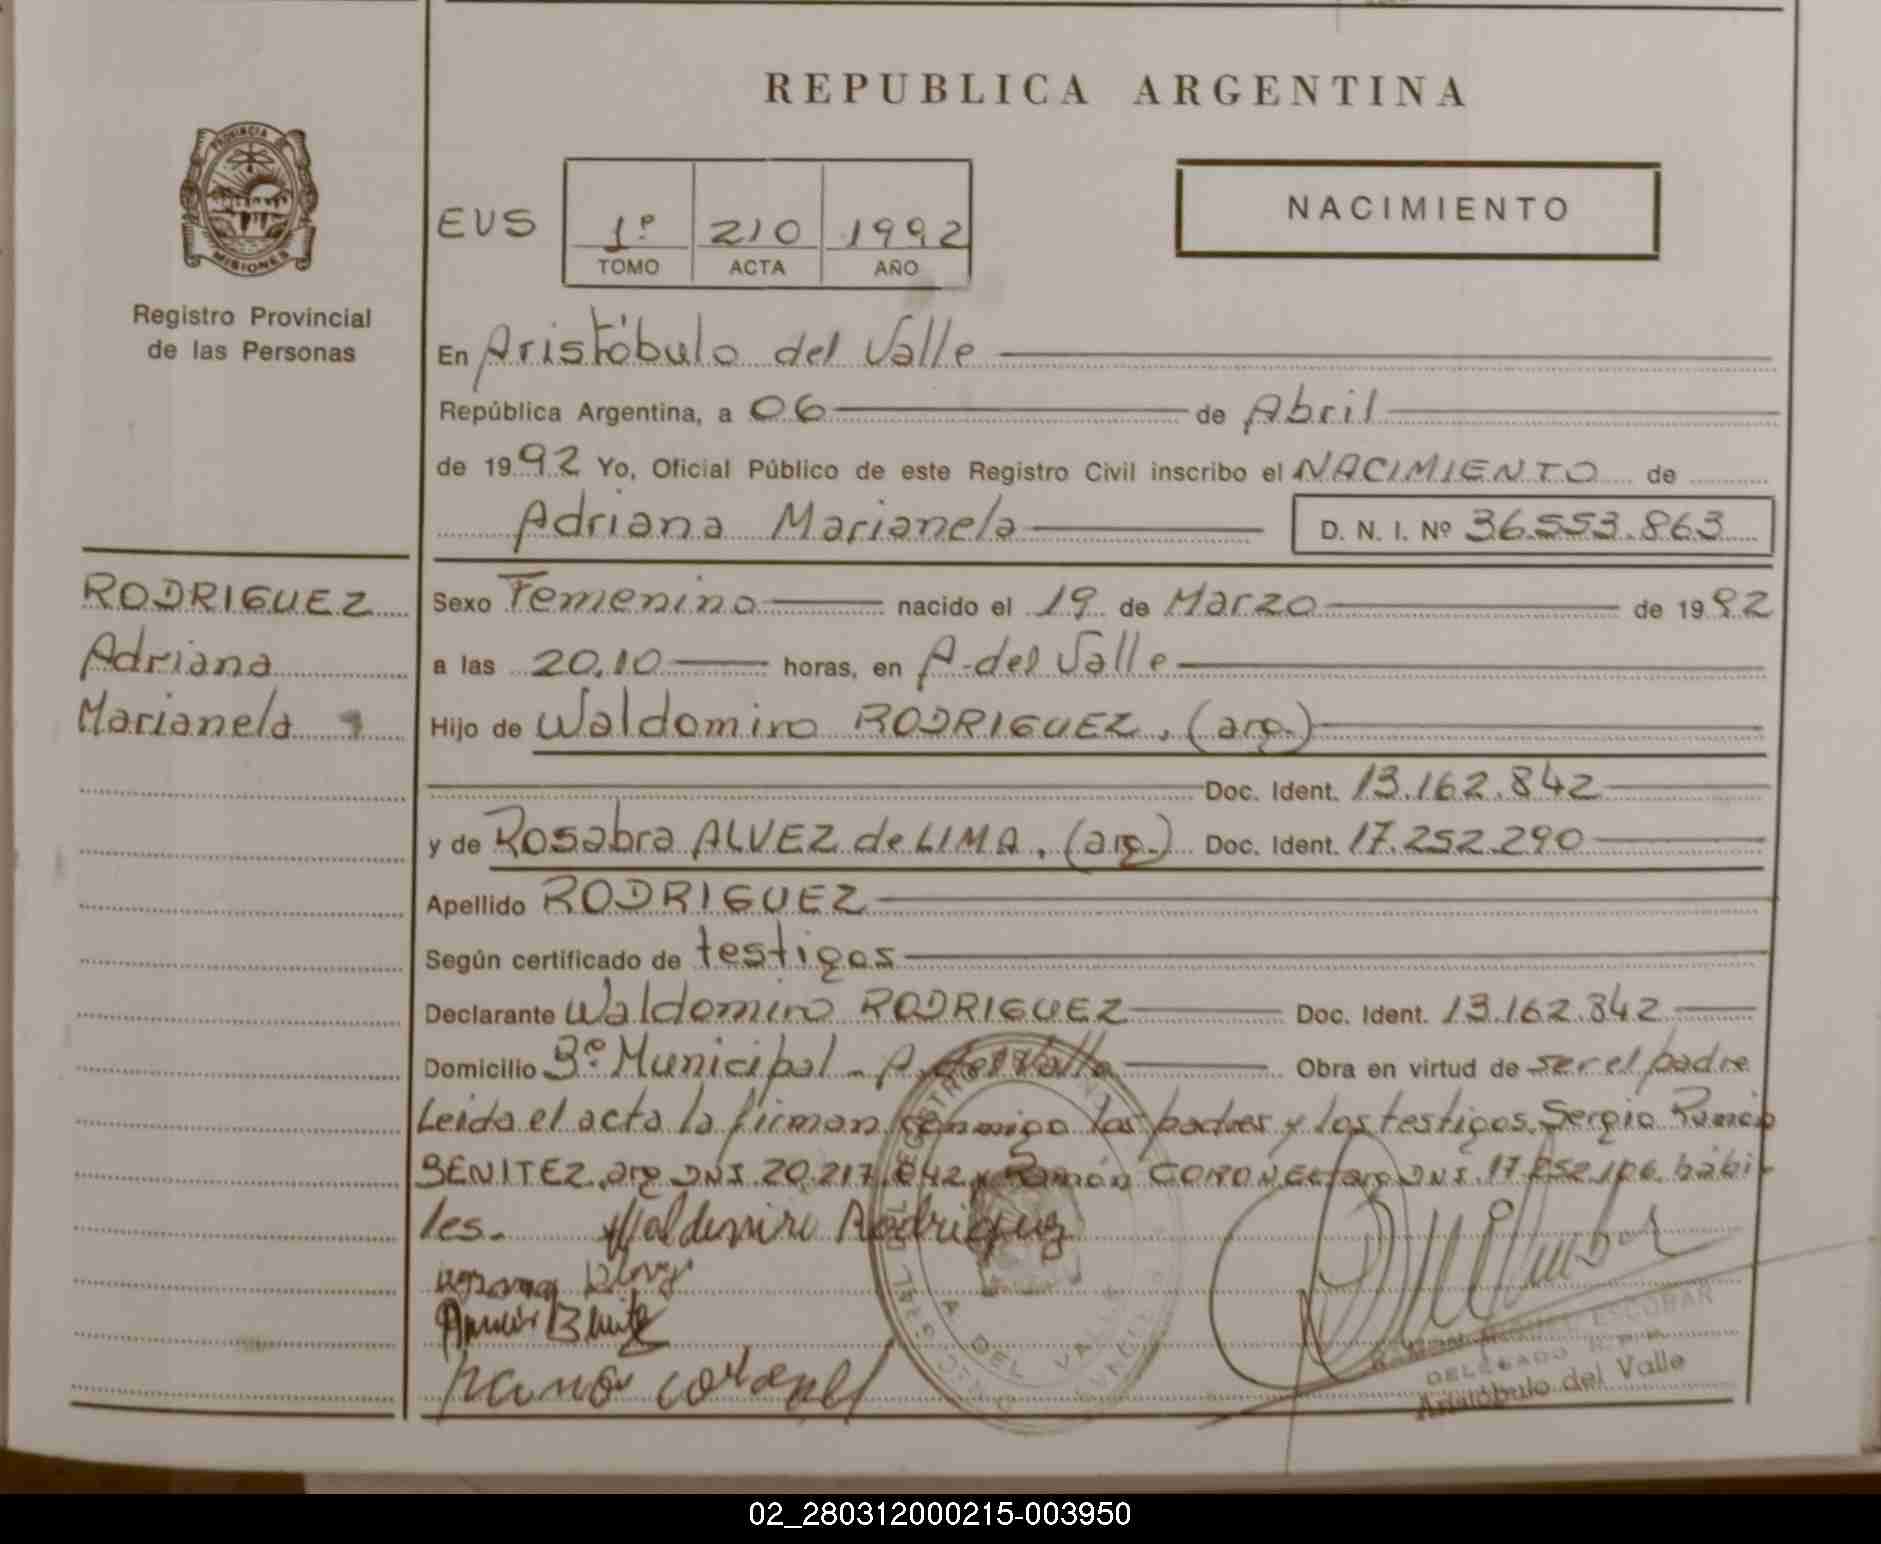 REPUBLICA ARGENTINA
PROVINCIA DE
MISIONES
Registro Provincial
de las Personas
EVS
1º 210 1992
TOMO ACTA AÑO
NACIMIENTO
En Aristóbulo del Valle
República Argentina, a 06 de Abril
de 1992 Yo, Oficial Público de este Registro Civil inscribo el NACIMIENTO de
Adriana Marianela D. N. I. Nº 36.553.863
RODRIGUEZ
Adriana
Marianela
Sexo Femenino nacido el 19 de Marzo de 1992
a las 20.10 horas, en A. del Valle
Hijo de Waldomiro RODRIGUEZ, (arg.)
Doc. Ident. 13.162.842
y de Rosabra ALVEZ de LIMA, (arg.) Doc. Ident. 17.252.290
Apellido RODRIGUEZ
Según certificado de testigos
Declarante Waldomiro RODRIGUEZ Doc. Ident. 13.162.842
Domicilio Bº Municipal - A. del Valle Obra en virtud de ser el padre
Leida el acta la firman conmigo los padres y los testigos, Sergio Ramón
BENITEZ, arg DNI. 20.217.842 y Ramón CORONEL, arg DNI. 17.252.106. hábi-
les. Waldemiro Rodriguez
A. DEL VALLE
ESCOBAR
DELEGADO R.P.P.
Aristóbulo del Valle
02_280312000215-003950